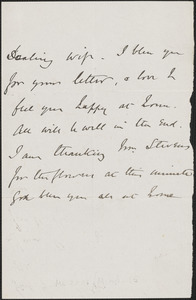 Darling Wife. I bless you
for your letter, & love to
feel you happy at home.
All will be well in the end.
I am thanking Mrs Stevens
for the flowers at this minute
God bless you all at home